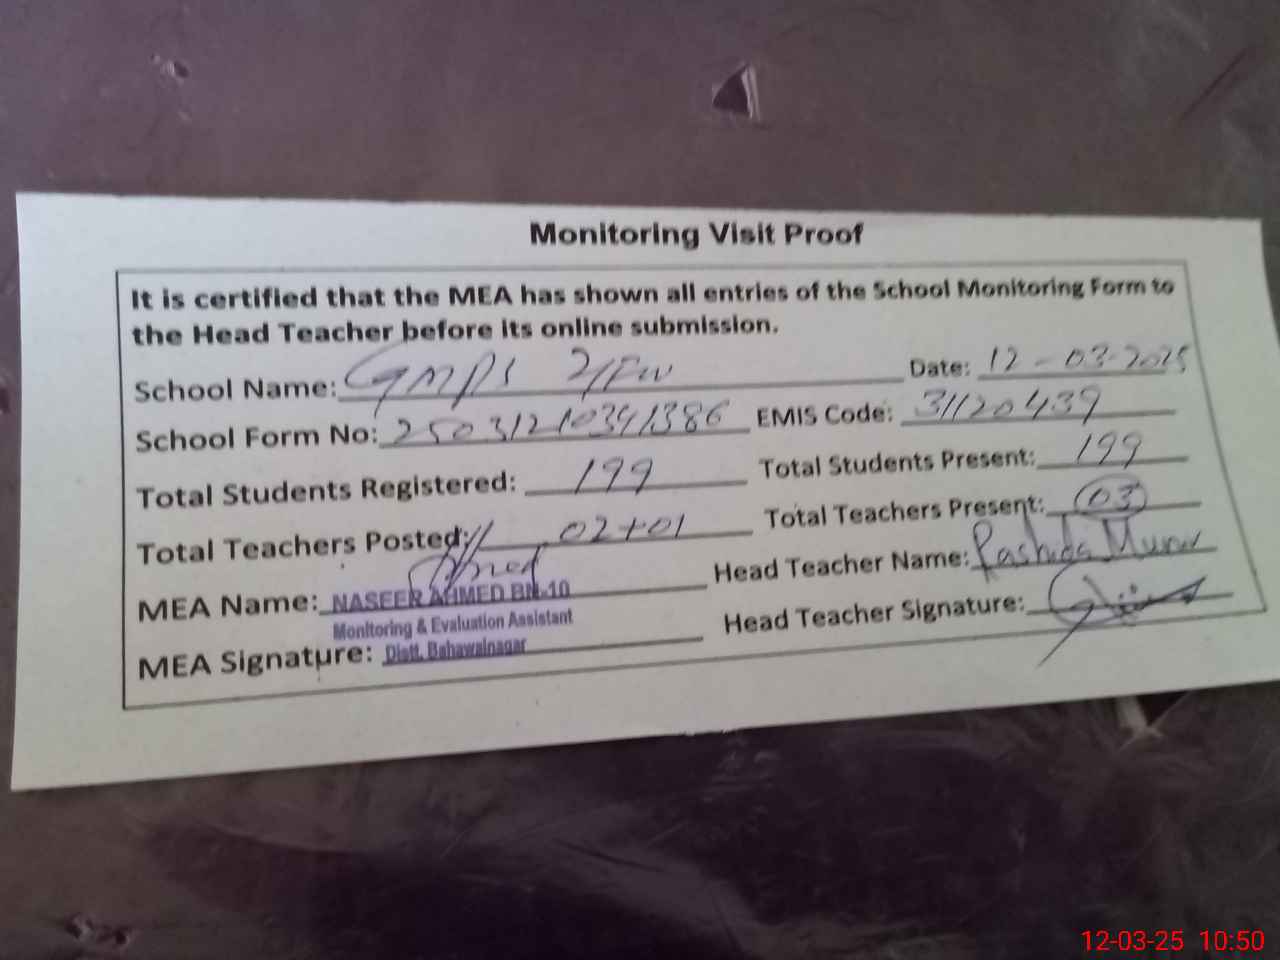 Monitoring Visit Proof
It is certified that the MEA has shown all entries of the School Monitoring Form to
the Head Teacher before its online submission.
School Name: GMPS 2/FW Date: 12-03-2025
School Form No: 25031210391386 EMIS Code: 31120439
Total Students Registered: 199 Total Students Present: 199
Total Teachers Posted: 02+01 Total Teachers Present: 03
MEA Name: NASEER AHMED BN-10 Head Teacher Name: Rashida Munir
Monitoring & Evaluation Assistant
MEA Signature: Distt. Bahawalnagar Head Teacher Signature:
12-03-25 10:50